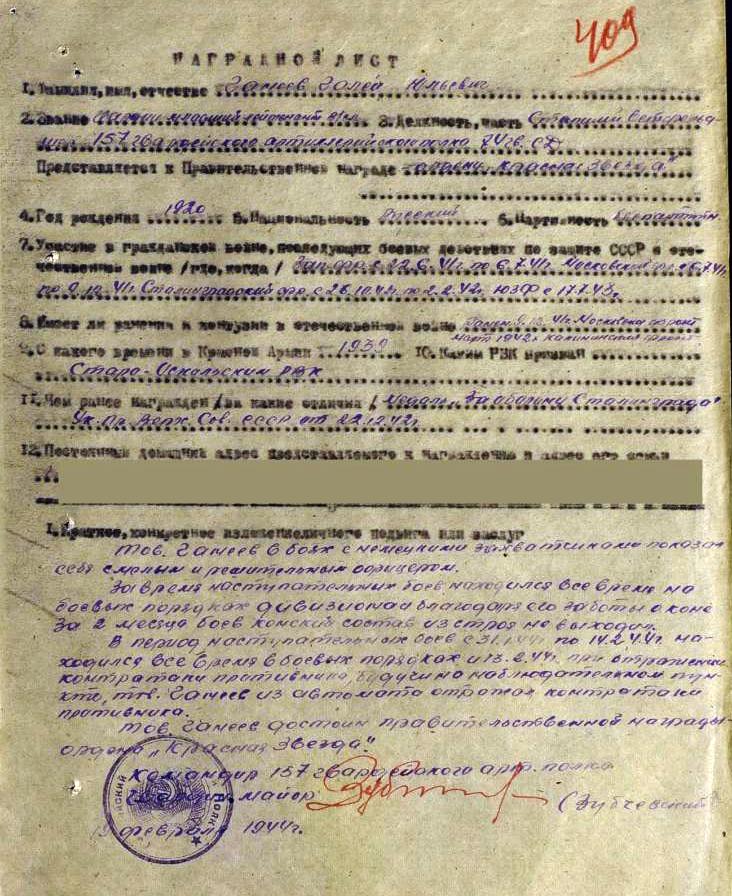 409
НАГРАДНОЙ ЛИСТ
1. Фамилия, имя, отчество Ганеев
2. Звание Гвардии младший лейтенант 3. Должность, часть Старший
157 гвардейского артиллерийского полка 74 гв. СД
Представляется к Правительственной награде ордену "Красная Звезда"
4. Год рождения 1920 5. Национальность Русский 6. Партийность
7. Участие в гражданской войне, последующих боевых действиях по защите СССР и оте-
чественной войне /где, когда/ Зап. фр. с 22.6.41г. по 6.7.41г. Московский фр. с 6.7.41г.
Сталинградский фр. с 26.10.42г. по 2.2.42г. ЮЗФ с 17.7.43г.
8. Имеет ли ранения и контузии в отечественной войне Московск. фронт
март 1942г. Калининский фронт
9. С какого времени в Красной Армии 1939 10. Каким РВК призван
Старо-Оскольским РВК
11. Чем ранее награжден /за какие отличия/ Медаль "За оборону Сталинграда"
Ук. Пр. Верх. Сов. СССР от 22.12.42г.
12. Постоянный домашний адрес представляемого к награждению и адрес его семьи
I. Краткое, конкретное изложение личного подвига или заслуг
Тов. Ганеев в боях с немецкими захватчиками показал
себя смелым и решительным офицером.
За время наступательных боев находился все время на
боевых порядках дивизиона и благодаря его заботы о коне
за 2 месяца боев конский состав из строя не выходил.
В период наступательных боев с 31.1.44г. по 14.2.44г. на-
ходился все время в боевых порядках и 13.2.44г. при отражении
контратаки противника, будучи на наблюдательном пун-
кте, тов. Ганеев из автомата отражал контратаки
противника.
Тов. Ганеев достоин правительственной награды-
ордена "Красная Звезда".
Командир 157 гвардейского арт. полка
Гвардии майор (Зубчевский)
19 февраля 1944г.